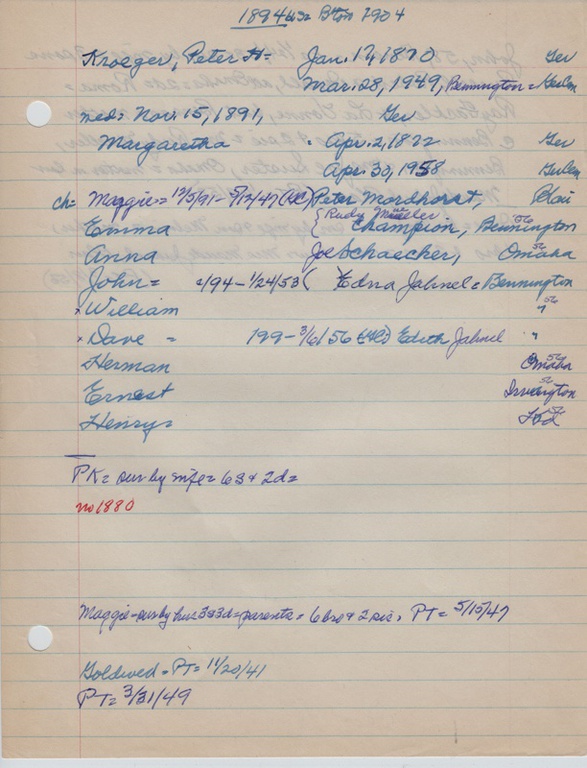 1894 Btn 1904
Kroeger, Peter H= Jan. 17, 1870 Ger
Mar. 28, 1949, Bennington=
med= Nov. 15, 1891, Ger
Margaretha = Apr. 2, 1872 Ger
Apr. 30, 1958
ch= Maggie= 12/5/91-5/12/47 (HC) Peter Mordhorst, Blair
{Rudy Mueller
Emma Champion, Bennington 56
Anna Joe Schaecher, Omaha 56
John= =/94-1/24/53 ( Edna Jahnel= Bennington
x William " 56
x Dave = 199-3/6/56 (HC) Edith Jahnel "
Herman Omaha 56
Ernest Irvington 56
Henry= 56
PK= sur by wife= 6s & 2d=
no 1880
Maggie= sur by hus= 3s 3d= parents= 6 bro & 2 sis, PT= 5/15/47
Goldwed= PT= 11/20/41
PT= 3/31/49